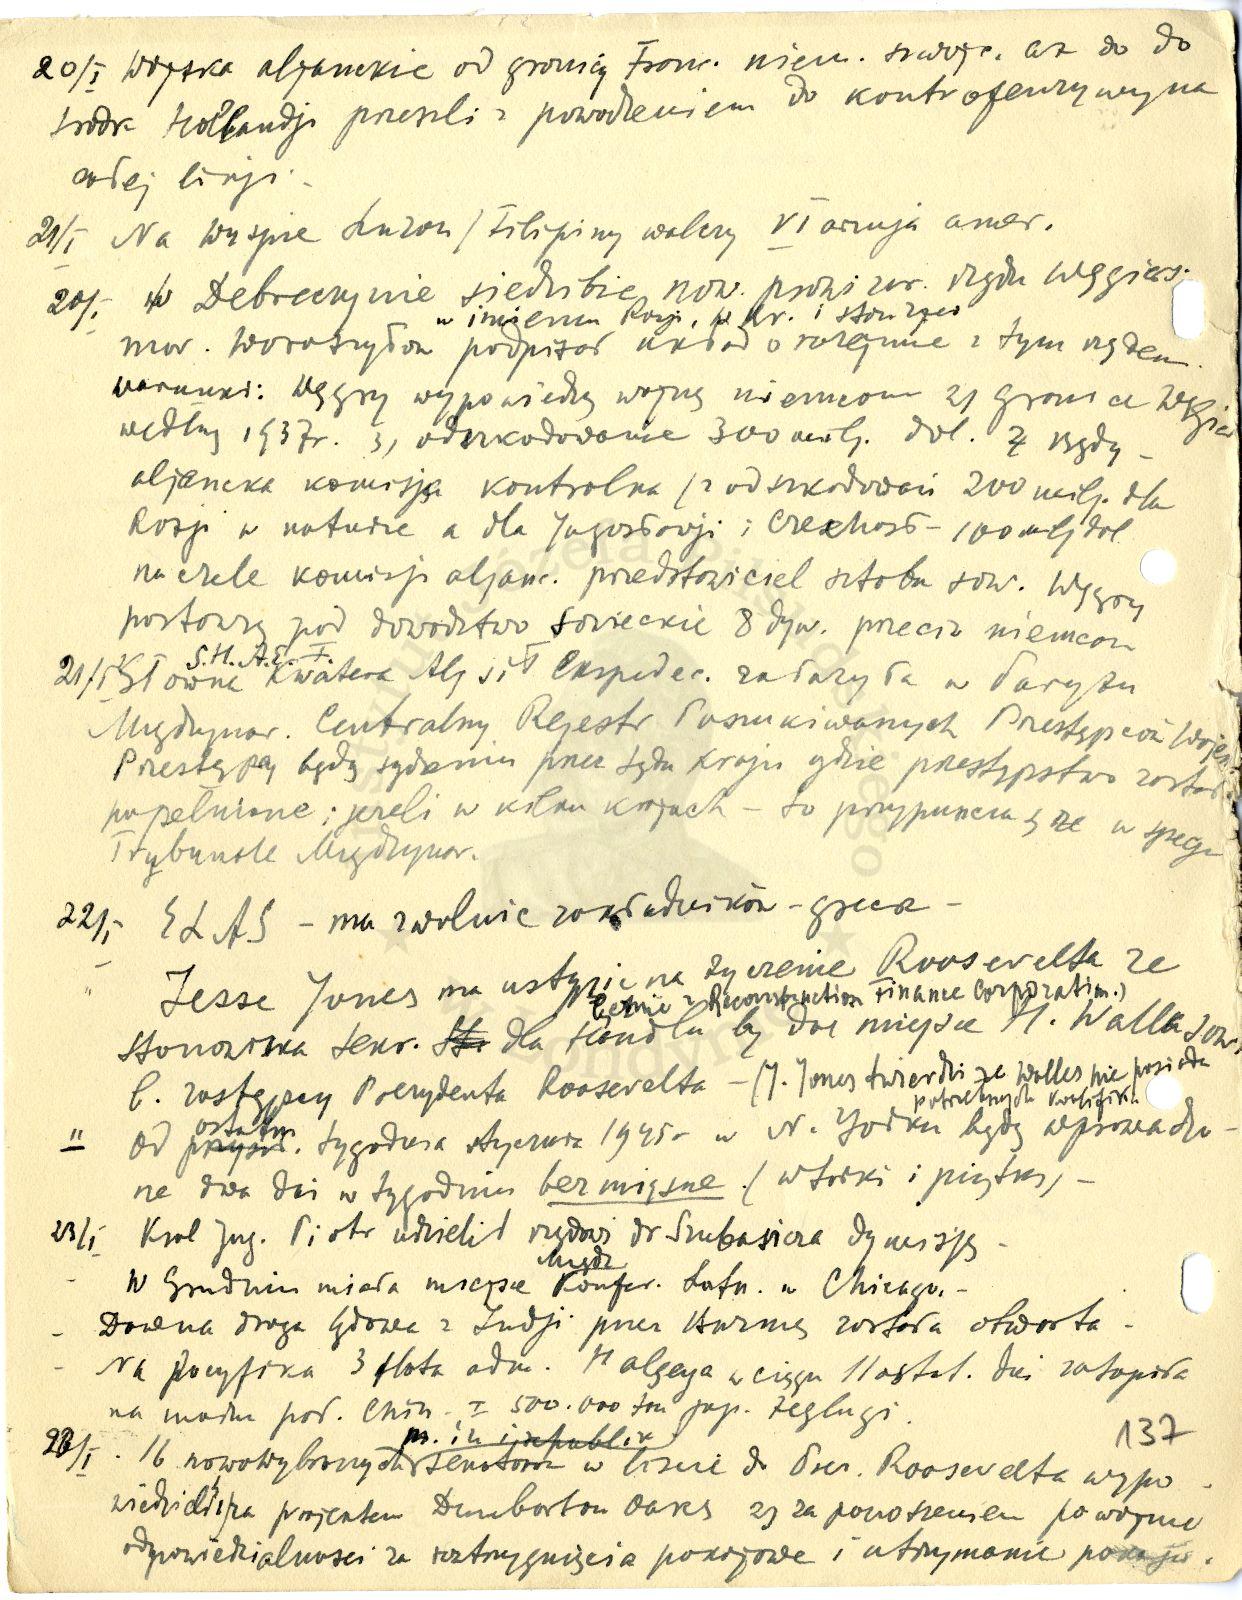 20/I Wojska aljanckie od granicy Franc. niem. szwajc. aż do do
środk Hollandji przeszli z powodzeniem do kontrofenzywy na
całej linji.-
21/I Na wyspie Luzon / Filipiny walczy VI armja amer.
20/I. w Debreczynie siedzibie now. prowizor. rządu węgiers.
w imieniu Rosji, W Br. i Stan Zjed
mar. Woroszyłow podpisał układ o rozejmie z tym rządem.
warunki: Węgry wypowiedzą wojnę niemcom 2) granice Węgier
według 1937 r. 3) odszkodowanie 300 milj. dol. 4 rządy -
aljancka komisja kontrolna / z odszkodowań 200 milj. dla
Rosji w naturze a dla Jugosławji i Czechosł - 100 mlj dol
na czele komisji aljanc. przedstawiciel sztabu sow. Węgry
postawią pod dowództwo sowieckie 8 dyw. przeciw niemcom
S.H.A.E.F.
21/I Główna Kwatera Alj Sił Ekspedec. założyła w Paryżu
Międzynar. Centralny Rejestr Poszukiwanych Przestępców Wojen
Przestępcy będą sądzeni przez sądu kraju gdzie przestępstwo zostało
popełnione; jeżeli w kilku krajach - to przypuszcza się że w specja
Trybunale Międzynar.
22/I. ELAS - ma zwolnić zakładników - grecz -
" Jesse Jones ma ustąpić na życzenie Roosevelta ze
łącznie z Reconstruction Finance Corporation.)
stanowiska sekr. dla Handlu by dać miejsce H. Wallasow.
b. zastępcy Prezydenta Roosevelta - (J. Jones twierdzi że Walles nie posiada
potrzebnych kwalifika
ostatn
" Od przysł. tygodnia stycznia 1945 - w N. Jorku będą wprowadzo-
ne dwa dni w tygodniu bezmięsne. / wtorki i piątki) -
23/I Król Jug. Piotr udzielił rządowi dr Szubasicza dymisję -
Międz
- W Grudniu miała miejsce Konfer. Lotn. w Chicago. -
- Dawna droga lądowa z Indji przez Burmę została otwarta -
- Na Pacyfiku 3 flota adm. Halseya w ciągu 11 ostat. dni zatopiła
na morzu poł. Chin - I 500.000 ton jap. żeglugi.
137
23/I. 16 nowowybranych senatorów w liście do Prez. Roosevelta wypo
wiedzieli się za projektem Dumbarton Oaks 2) za ponoszeniem po wojnie
odpowiedzialności za rozstrzygnięcia pokojowe i utrzymanie pokoju.